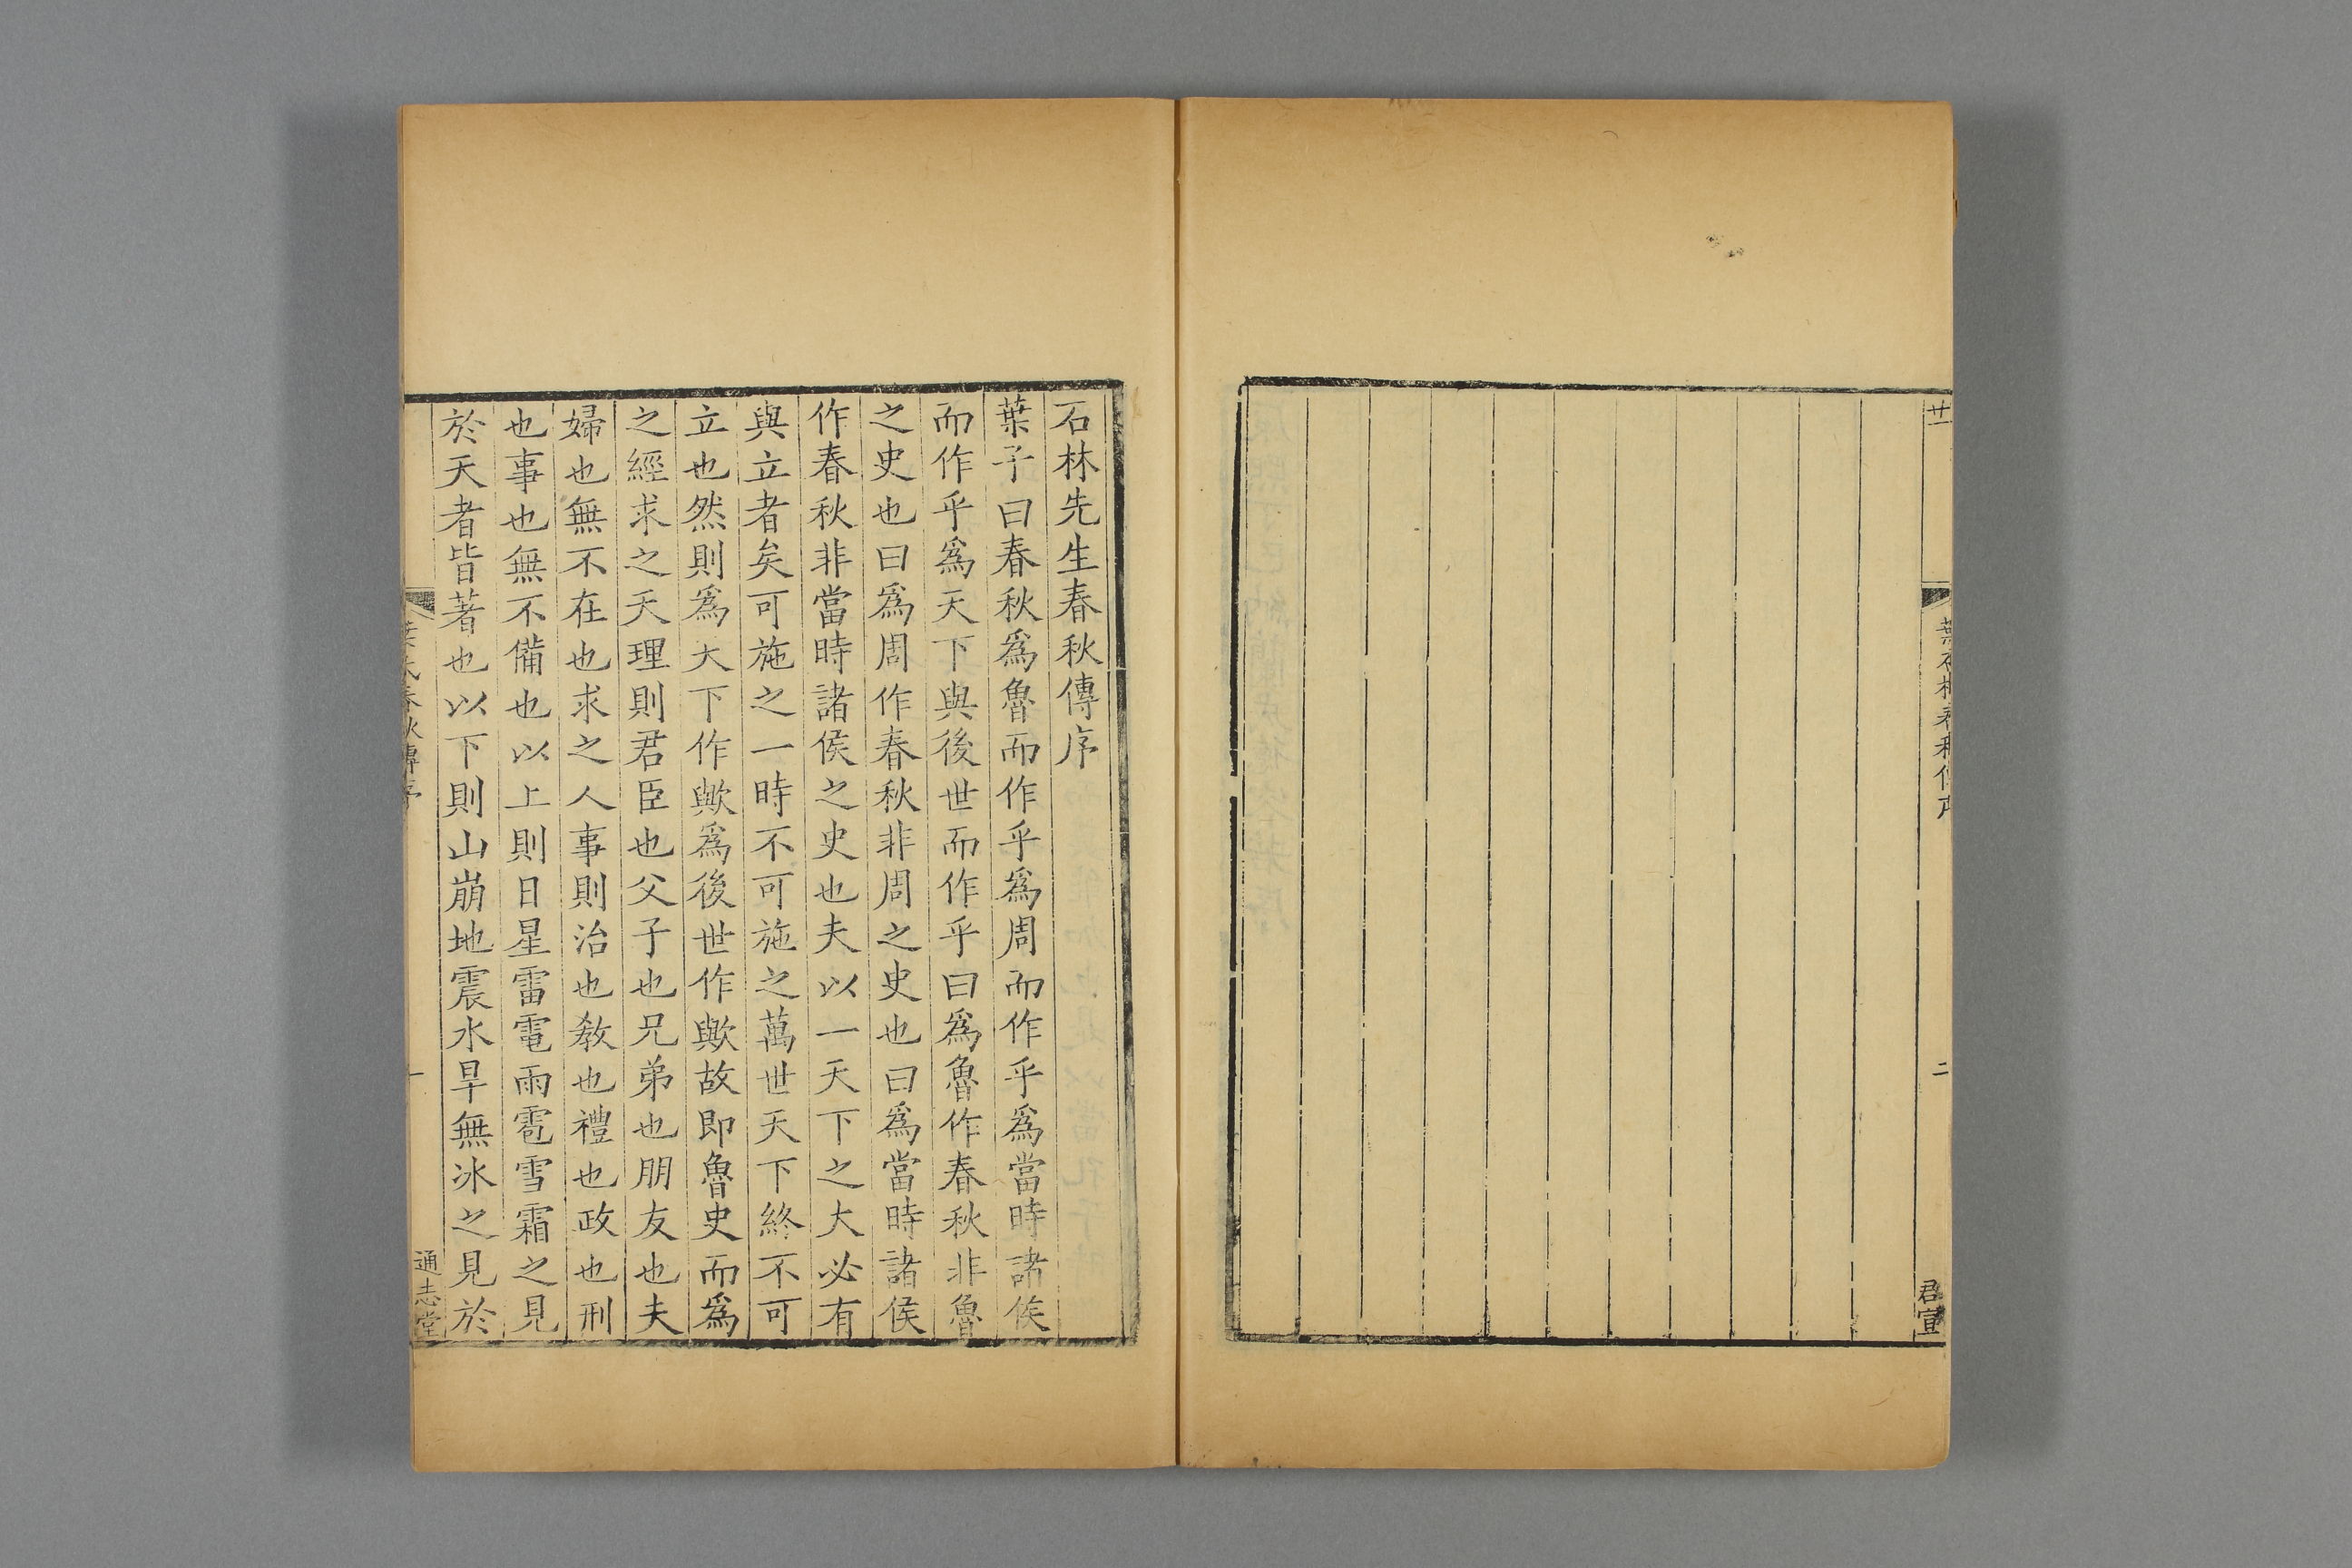 廿一
葉石林春秋傳序
二
君宣
石林先生春秋傳序
葉子曰春秋爲魯而作乎爲周而作乎爲當時諸侯
而作乎爲天下與後世而作乎曰爲魯作春秋非魯
之史也曰爲周作春秋非周之史也曰爲當時諸侯
作春秋非當時諸侯之史也夫以一天下之大必有
與立者矣可施之一時不可施之萬世天下終不可
立也然則爲大下作歟爲後世作歟故即魯史而爲
之經求之天理則君臣也父子也兄弟也朋友也夫
婦也無不在也求之人事則治也敎也禮也政也刑
也事也無不備也以上則日星雷電雨雹雪霜之見
於天者皆著也以下則山崩地震水旱無冰之見於
葉氏春秋傳序
一
通志堂